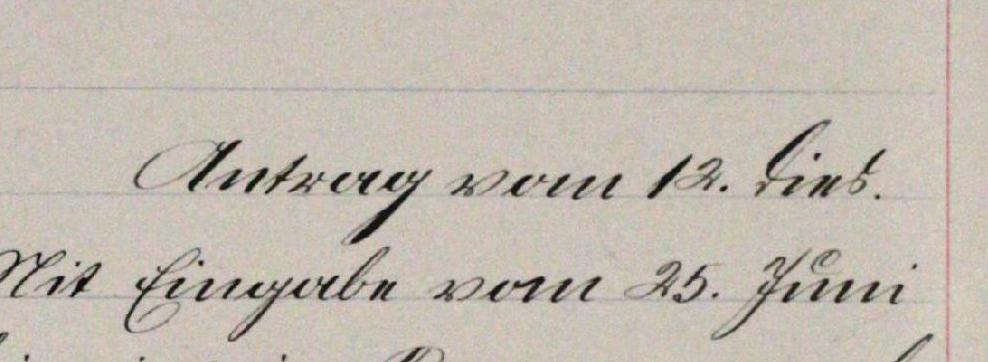 Antrag vom 12. dies.
Mit Eingabe vom 25. Juni